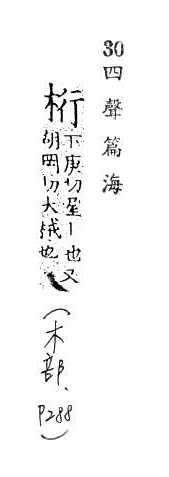 30 四聲篇海
桁 下庚切屋丨也又
胡岡切大械也
(木部、P288)